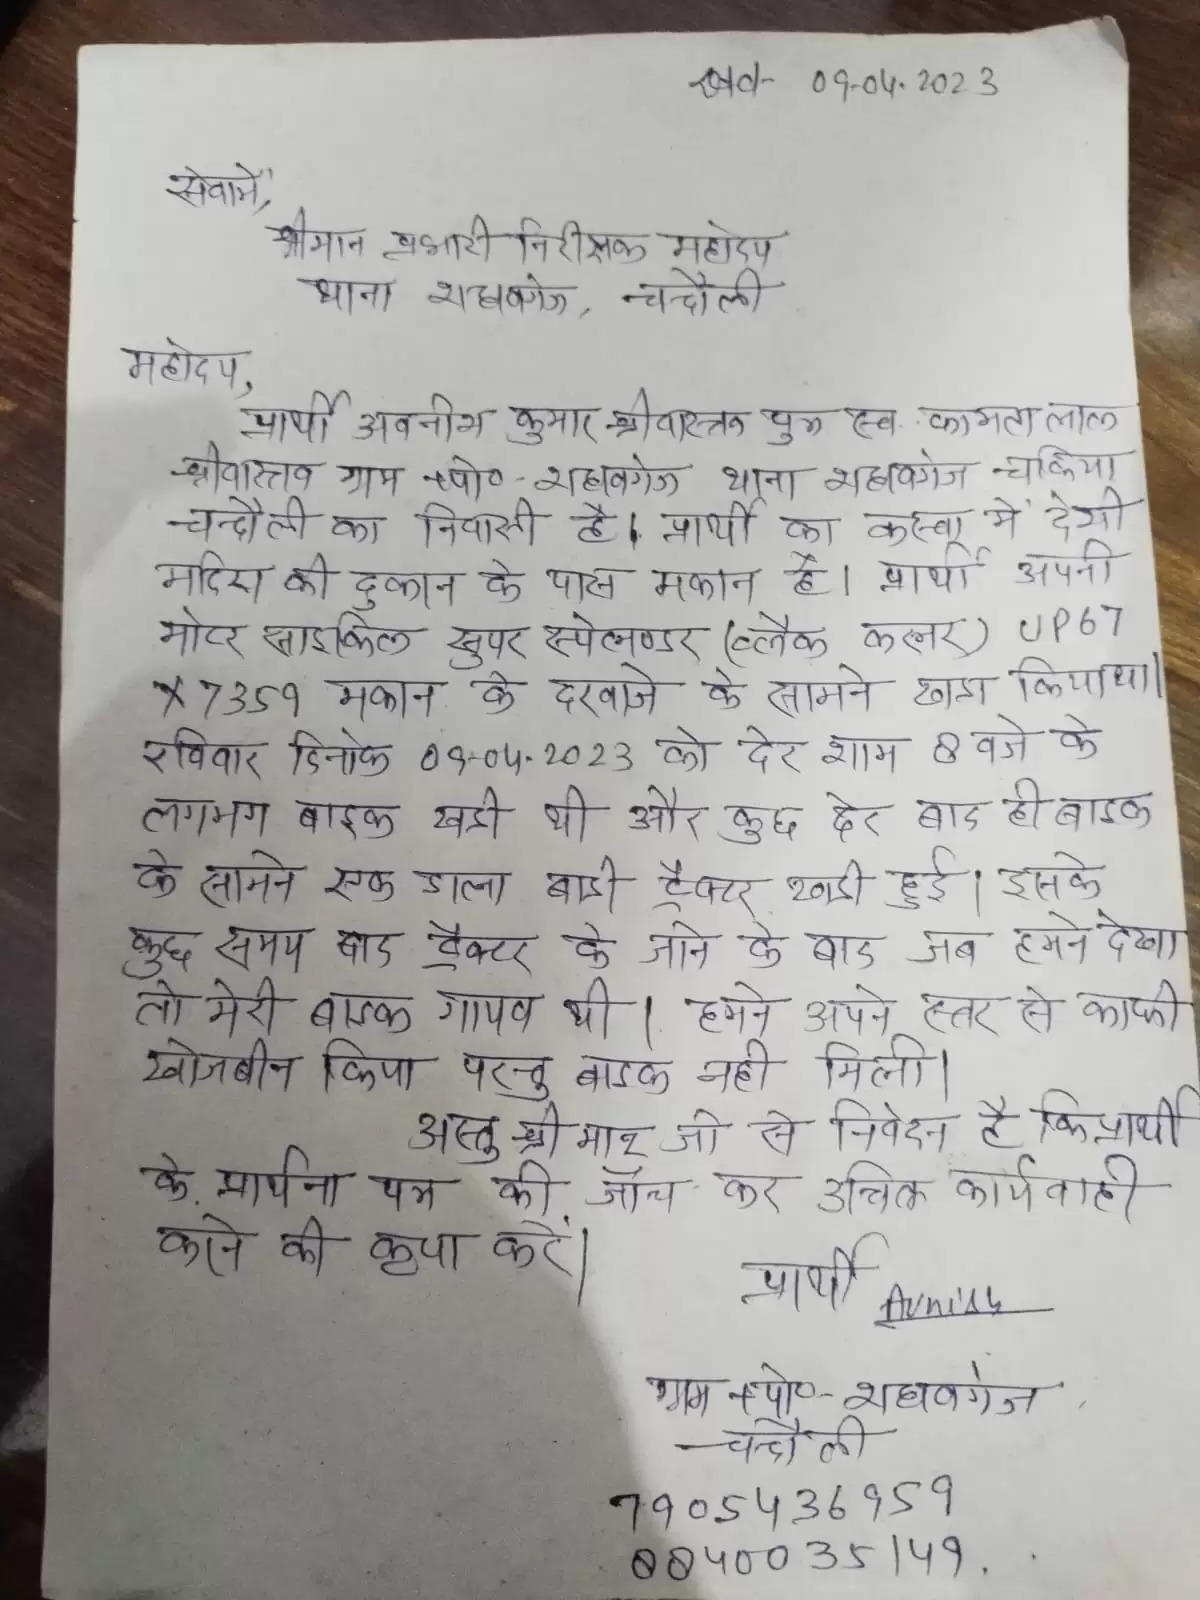 09-04-2023
सेवामें,
श्रीमान प्रभारी निरीक्षक महोदय
थाना शहाबगंज, चन्दौली
महोदय,
प्रार्थी अवनीश कुमार श्रीवास्तव पुत्र स्व. कामता लाल
श्रीवास्तव ग्राम +पो०-शहाबगंज थाना शहाबगंज चकिया
चन्दौली का निवासी है। प्रार्थी का कस्बा में देशी
मदिरा की दुकान के पास मकान है। प्रार्थी अपनी
मोटर साइकिल सुपर स्पेलण्डर (ब्लैक कलर) UP67
X 7359 मकान के दरवाजे के सामने खडा किया था।
रविवार दिनांक 09-04-2023 को देर शाम 8 बजे के
लगभग बाइक खडी थी और कुछ देर बाद ही बाइक
के सामने एक डाला बाडी ट्रैक्टर खडी हुई। इसके
कुछ समय बाद ट्रैक्टर के जाने के बाद जब हमने देखा
तो मेरी बाइक गायब थी। हमने अपने स्तर से काफी
खोजबीन किया परन्तु बाइक नही मिली।
अस्तु श्रीमान जी से निवेदन है कि प्रार्थी
के प्रार्थना पत्र की जाँच कर उचित कार्यवाही
करने की कृपा करें।
प्रार्थी Avnish
ग्राम +पो०-शहाबगंज
चन्दौली
7905436959
8840035149.